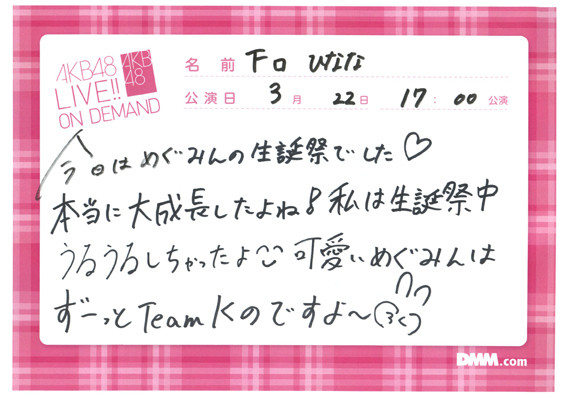 AKB48
LIVE!!
ON DEMAND
AKB
48
名前 下口 ひなな
公演日 3月 22日 17:00 公演
今日はめぐみんの生誕祭でした♡
本当に大成長したよね!私は生誕祭中
うるうるしちゃったよ 可愛いめぐみんは
ずーっとTeam Kのですよ〜
DMM.com